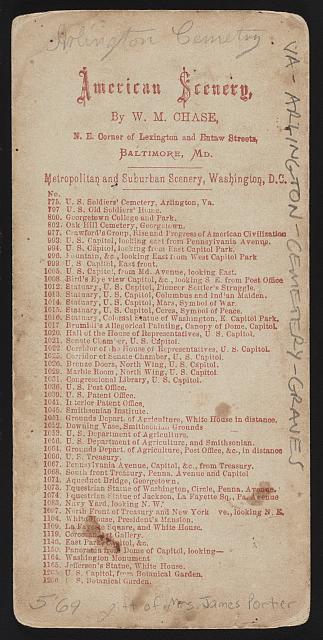 Arlington Cemetery
American Scenery,
By W. M. CHASE,
N. E. Corner of Lexington and Eutaw Streets,
BALTIMORE, MD.
Metropolitan and Suburban Scenery, Washington, D.C.
No.
775. U. S. Soldiers' Cemetery, Arlington, Va.
797 U. S. Old Soldiers' Home.
800. Georgetown College and Park.
802. Oak Hill Cemetery, Georgetown.
977. Crawford's Group, Rise and Progress of American Civilization
993. U. S. Capitol, looking east from Pennsylvania Avenue.
994. U. S. Capitol, looking from East Capitol Park.
996. Fountain, &c., looking East from West Capitol Park
999. U. S. Capitol, East front.
1005. U. S. Capitol, from Md. Avenue, looking East.
1008. Bird's Eye view Capitol, &c., looking S. E. from Post Office
1012. Statuary, U. S. Capitol, Pioneer Settler's Struggle.
1013. Statuary, U. S. Capitol, Columbus and Indian Maiden.
1014. Statuary, U. S. Capitol, Mars, Symbol of War.
1015. Statuary, U. S. Capitol, Ceres, Symbol of Peace.
1016. Statuary, Colossal Statue of Washington, E. Capitol Park.
1017. Brumidi's Allegorical Painting, Canopy of Dome, Capitol.
1020. Hall of the House of Representatives, U. S. Capitol.
1021. Senate Chamber, U. S. Capitol.
1022. Corridor of the House of Representatives, U. S. Capitol.
1025. Corridor of Senate Chamber, U. S. Capitol.
1026. Bronze Doors, North Wing, U. S. Capitol.
1029. Marble Room, North Wing, U. S. Capitol.
1031. Congressional Library, U. S. Capitol.
U. S. Post Office.
U. S. Patent Office.
Interior Patent Office.
1045. Smithsonian Institute.
Grounds Depart. of Agriculture, White House in distance.
1052. Downing Vase, Smithsonian Grounds
U. S. Department of Agriculture.
U. S. Department of Agriculture, and Smithsonian.
Grounds Depart. of Agriculture, Post Office, &c., in distance
U. S. Treasury.
1067. Pennsylvania Avenue, Capitol, &c., from Treasury.
South front Treasury, Penna. Avenue and Capitol
1071. Aqueduct Bridge, Georgetown.
1073. Equestrian Statue of Washington, Circle, Penna. Avenue.
1074. Equestrian Statue of Jackson, La Fayette Sq., Pa. Avenue
Navy Yard, looking N. W.
North Front of Treasury and New York ve., looking N. E.
1104. White House, President's Mansion.
1109. La Fayette Square, and White House.
1119. Corcoran Art Gallery.
1146. East Park, Capitol, &c.
1150. Panorama from Dome of Capitol, looking—
1164. Washington Monument
1165. Jefferson's Statue, White House.
U. S. Capitol, from Botanical Garden.
U. S. Botanical Garden.
5'69 gift of Mrs. James Porter
VA - ARLINGTON CEMETERY - GRAVES